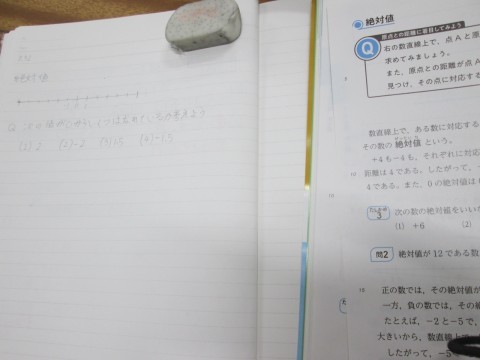 絶対値
(1) 2 (2) -2 (3) 1.5 (4) -1.5
絶対値
原点との距離に着目してみよう
Q
右の数直線上で，点Aと原
求めてみましょう。
また，原点との距離が点A
見つけ，その点に対応する
数直線上で，ある数に対応する
その数の 絶対値 という。
+4も-4も，それぞれに対応
距離は4である。したがって，-
4である。また，0の絶対値は
次の数の絶対値をいい
(1) +6 (2)
問2 絶対値が12である数
正の数では，その絶対値が
一方，負の数では，その絶
たとえば，-2と-5で，
大きいから，数直線上で，
したがって，-5